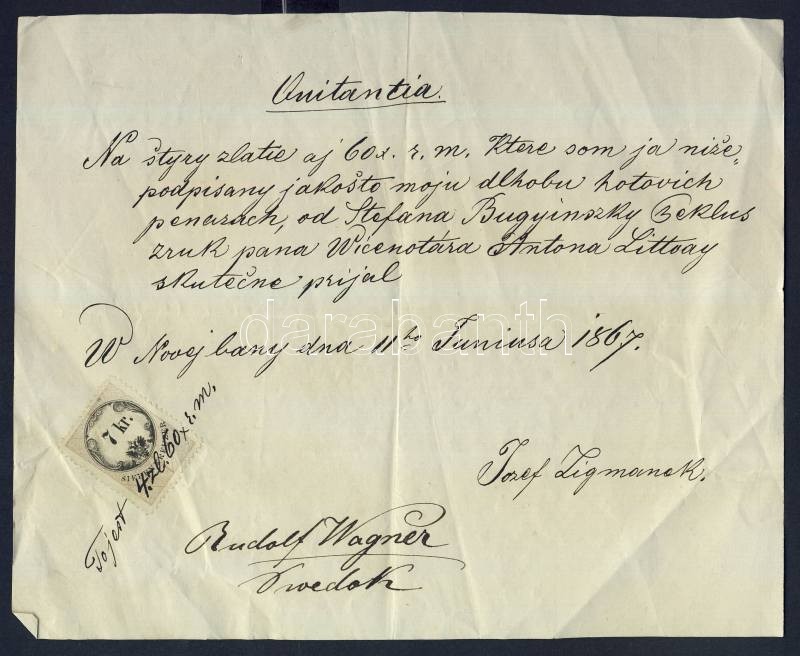 Quitantia.
Na štyry zlatie aj 60x. r. m. Ktere som ja niže„
podpisany jakošto moju dlhobu hotovich
penazach, od Stefana Bugyinszky Beklus
zruk pana Wicenotára Antona Littvay
skutečne prijal
W Novej bany dna 11ho Juniusa 1867.
darabanth
7 kr.
Jozef Zigmanek.
To jest 4 zl. 60x r. m.
Rudolf Wagner
Swedok